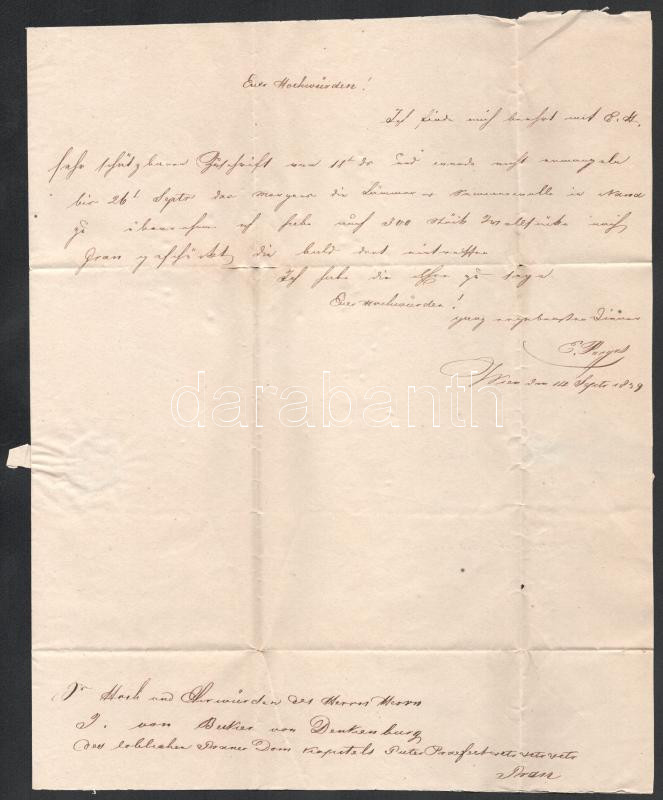 Euer Hochwürden!
Ich finde mich beehrt mit E. H.
sehr schätzbaren Zuschrift von 11t ds und werde nicht ermangeln
bis 26t Septr des Morgens die Lämmer in
zu übernehmen ich habe auch 300 Stück Wollsäcke nach
Gran geschickt die bald dort eintreffen
Ich habe die Ehre zu seyn
Euer Hochwürden!
ganz ergebenster Diener
E.
Wien den 14 Septr 1839
darabanth
Sr Hoch und Ehrwürden des Herrn Herrn
J. von Beker von Denkenburg
des löblichen Graner Dom Kapitels Güter Praefect etc etc etc
Gran